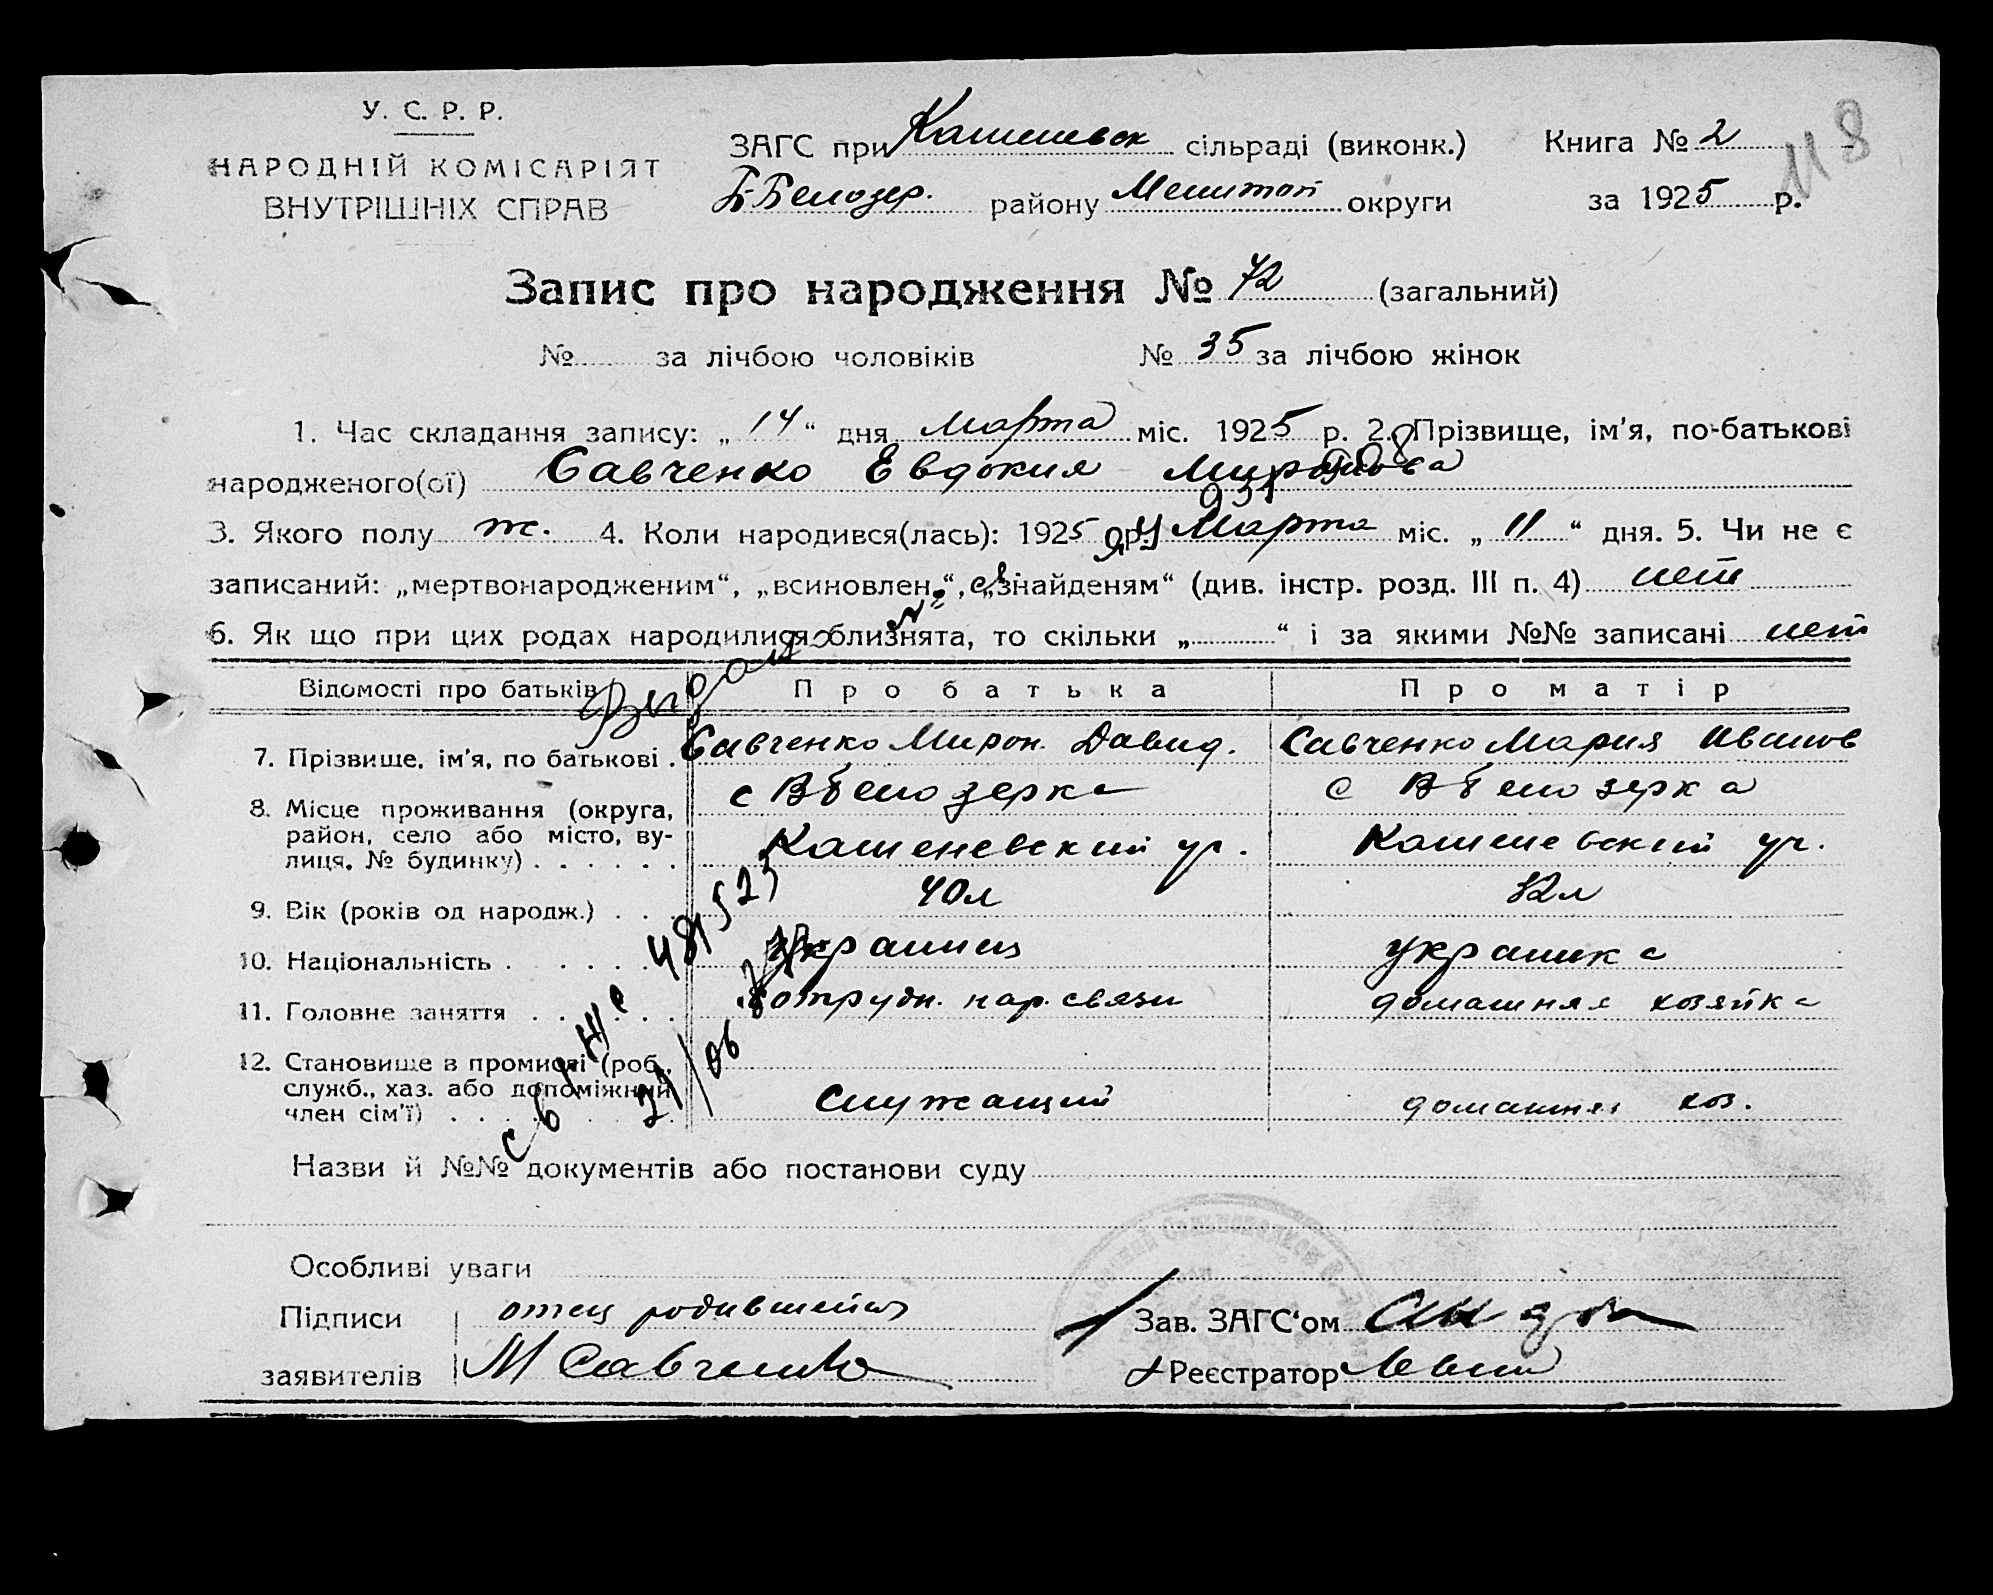 У. С. Р. Р.
НАРОДНІЙ КОМІСАРІЯТ
ВНУТРІШНІХ СПРАВ
ЗАГС при сільраді (виконк.)
Б-Белозер. району Мелитоп округи
Книга № 2
за 1925 р.
118
Запис про народження № 72 (загальний)
№ за лічбою чоловіків № 35 за лічбою жінок
1. Час складання запису: „ 14 “ дня марта міс. 1925 р. 2. Прізвище, ім'я, по-батькові
народженого(ої) Савченко Евдокия Миронова
3. Якого полу ж. 4. Коли народився(лась): 1925 р. Марта міс. „ 11 “ дня. 5. Чи не є
записаний: „мертвонародженим“, „всиновлен.“, „знайденям“ (див. інстр. розд. III п. 4) нет
6. Як що при цих родах народилися близнята, то скільки „ “ і за якими №№ записані нет
Відомості про батьків Про батька Про матір
7. Прізвище, ім'я, по батькові . Савченко Мирон. Давид. Савченко Мария Иванов
8. Місце проживання (округа, с Вбелозерка с Вбелозерка
район, село або місто, ву-
лиця, № будинку) . . . . . .
9. Вік (років од народж.) . . . 40л 32л
10. Національність . . . . . . украинец украинка
11. Головне заняття . . . . . . сотрудн. нар. связи домашняя хозяйка
12. Становище в промислі (роб.,
служб., хаз. або допоміжний
член сім'ї) . . . . . . Служащий домашняя хоз.
Назви й №№ документів або постанови суду
Особливі уваги
Підписи отец родившейся Зав. ЗАГС'ом
заявителів М Савченко Реєстратор